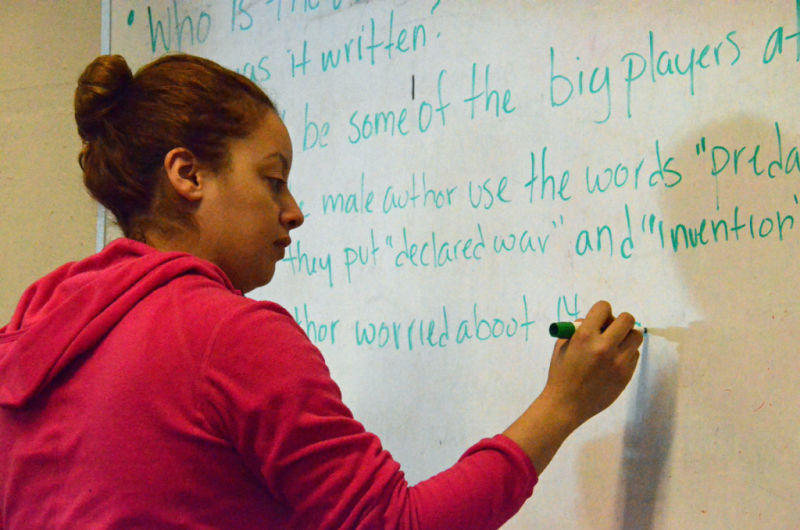 • Who is the
was it written?
be some of the big players at
male author use the words "preda
they put "declared war" and "invention"
thor worried about 14